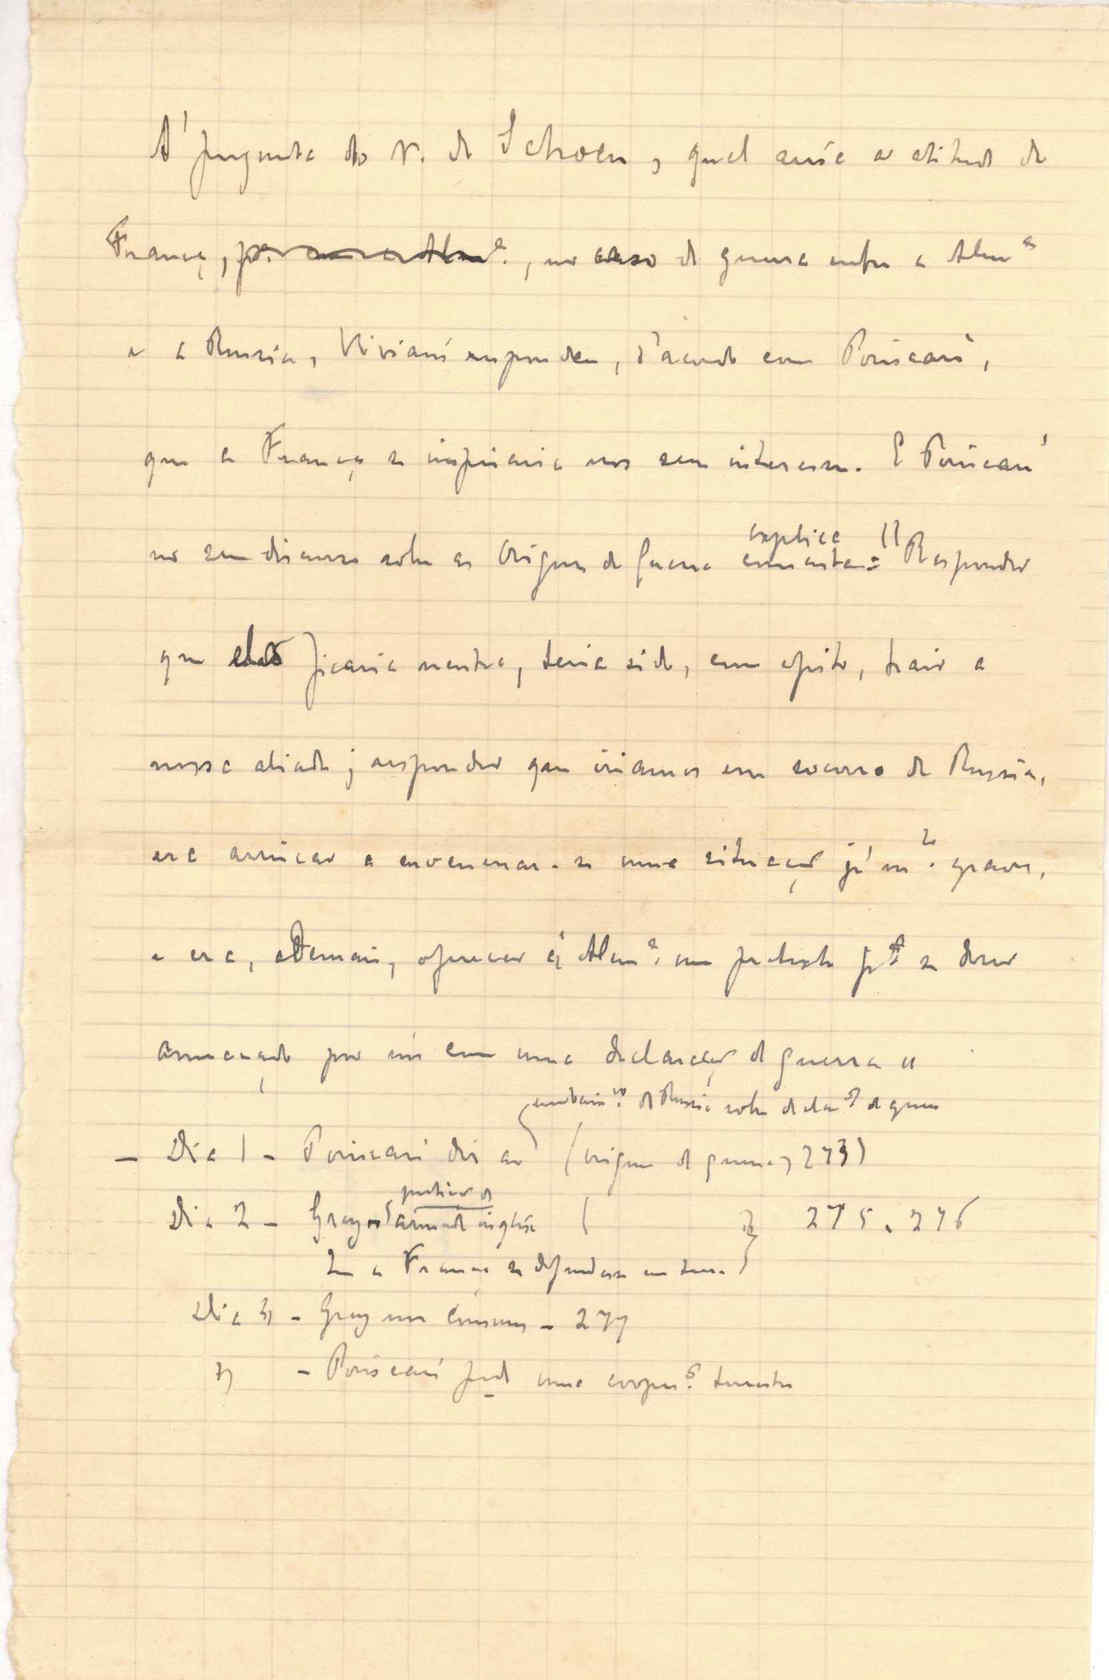 A' pergunta do V. de Schoen, qual seria a atitude da
França, no caso de guerra entre a Alem.ª
e a Russia, Viviani respondeu, d'acordo com Poincaré,
que a França se inspiraria nos seus interesses. E Poincaré
no seu discurso sobre as Origens da Guerra
explica
comenta: "Responder
que ela ficaria neutra, teria sido, com efeito, trair a
nossa aliada; responder que iriamos em socorro da Russia,
era arriscar a envenenar-se uma situação já m.to grave,
e era, ademais, oferecer á Alem.ª um pretexto p.ª se dizer
ameaçada por nós com uma declaração de guerra"
embaix.or da Russia sobre decla.ção de guerra
– Dia 1 – Poincaré diz ao (origens da guerra, 273)
Dia 2 – Grey armada inglesa ( " 275-276
Se a França se defendesse em terra)
Dia 3 – Grey nos Comuns – 277
" – Poincaré pede uma cooper.ão terrestre